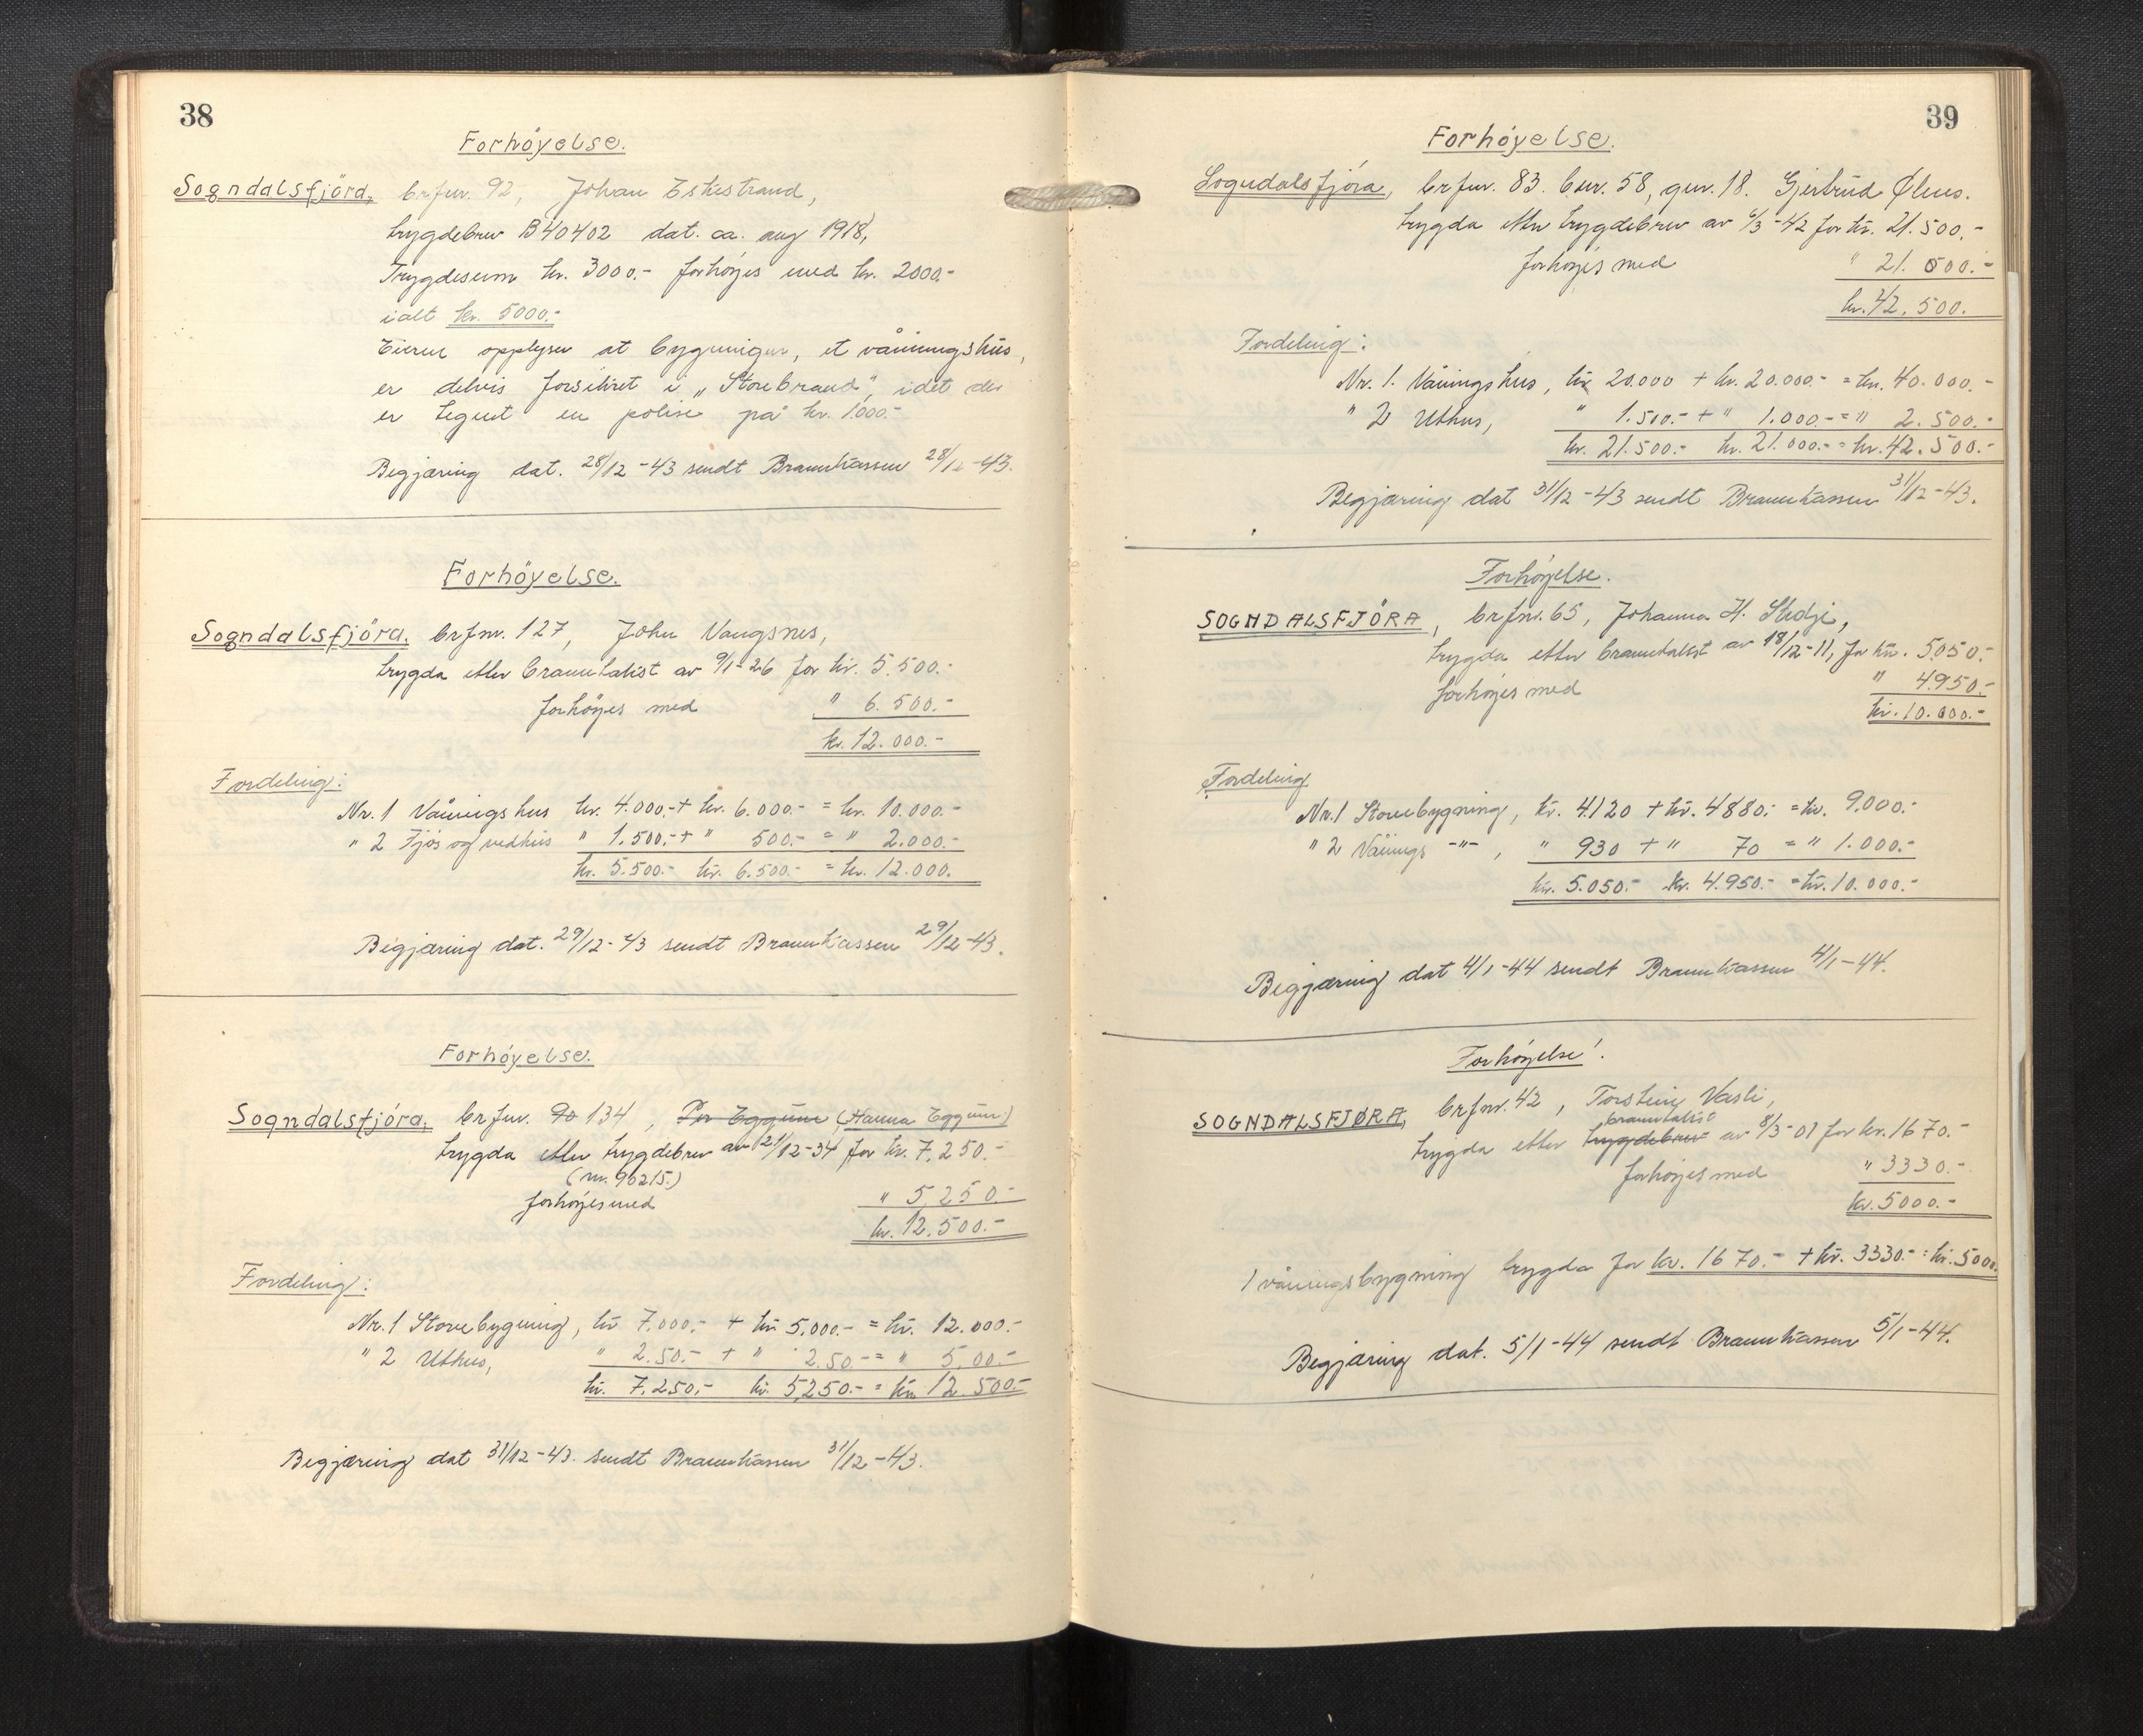 38
Forhöyelse.
Sogndalsfjöra, br.fnr. 92, Johan Eskestrand,
trygdebrev B40402 dat. ca. aug 1918,
Trygdesum kr. 3000.- forhöyes med kr. 2000.-
ialt kr. 5000.-
Eieren opplyser at bygningen, et våningshus,
er delvis forsikret i „Storebrand", idet der
er tegnet en polise på kr. 1000.-
Begjæring dat. 28/12-43 sendt Brannkassen 28/12-43.
Forhöyelse.
Sogndalsfjöra, br.fnr. 127, John Vangsnes,
trygda etter branntakst av 9/1-26 for kr. 5.500.-
forhöyes med " 6.500.-
kr. 12.000.-
Fordeling:
Nr. 1 Våningshus kr. 4.000.- + kr. 6.000.- = kr. 10.000.-
" 2 Fjös og vedhus " 1.500.- + " 500.- = " 2.000.-
kr. 5.500.- kr. 6.500.- = kr. 12.000.
Begjæring dat. 29/12-43 sendt Brannkassen 29/12-43.
Forhóyelse.
Sogndalsfjóra, br.fnr. 90 134, Per Eggum (Hanna Eggum)
trygda etter trygdebrev av 21/12-34 for kr. 7.250.-
(nr. 90215.)
forhóyes med " 5.250.-
kr. 12.500.-
Fordeling:
Nr. 1 Stovebygning, kr 7.000.- + kr 5.000.- = kr. 12.000.-
" 2 Uthus, " 2.50.- + " 2.50 - = " 5.00.-
kr. 7.250.- kr. 5.250.- = kr. 12.500.-
Begjæring dat 31/12-43. sendt Brannkassen 31/12-43.
39
Forhöyelse.
Sogndalsfjóra, br.fnr. 83. bnr. 58, gnr. 18. Gjertrud Øhus.
trygda etter trygdebrev av 6/3-42 for kr. 21.500.-
forhóyes med " 21.000.-
kr. 42.500.
Fordeling:
Nr. 1. Våningshus, kr 20.000 + kr. 20.000.- = kr. 40.000.-
" 2 Uthus, " 1.500.- + " 1.000.- = " 2.500.-
kr. 21.500.- kr. 21.000.- = kr. 42.500.-
Begjæring dat 31/12-43 sendt Brannkassen 31/12-43.
Forhöyelse.
SOGNDALSFJÖRA, br.fnr. 65, Johanna H. Stedje,
trygda etter branntakst av 18/12-11, for kr. 5.050.-
forhóyes med " 4.950.-
kr. 10.000.-
Fordeling
Nr. 1 Stovebygning, kr. 4120 + kr. 4880.- = kr. 9.000.-
" 2 Vånings -"-, " 930 + " 70 = " 1.000.-
kr. 5.050.- kr. 4.950.- = kr. 10.000.-
Begjæring dat 4/1-44 sendt Brannkassen 4/1-44.
Forhöyelse.
SOGNDALSFJØRA, br.fnr. 42, Torstein Vasli,
branntakst
trygda etter trygdebrev av 8/3-01 for kr. 1670.-
forhóyes med " 3330.-
kr. 5000.-
1 våningsbygning trygda for kr. 1670.- + kr. 3330.- = kr. 5000.
Begjæring dat. 5/1-44 sendt Brannkassen 5/1-44.